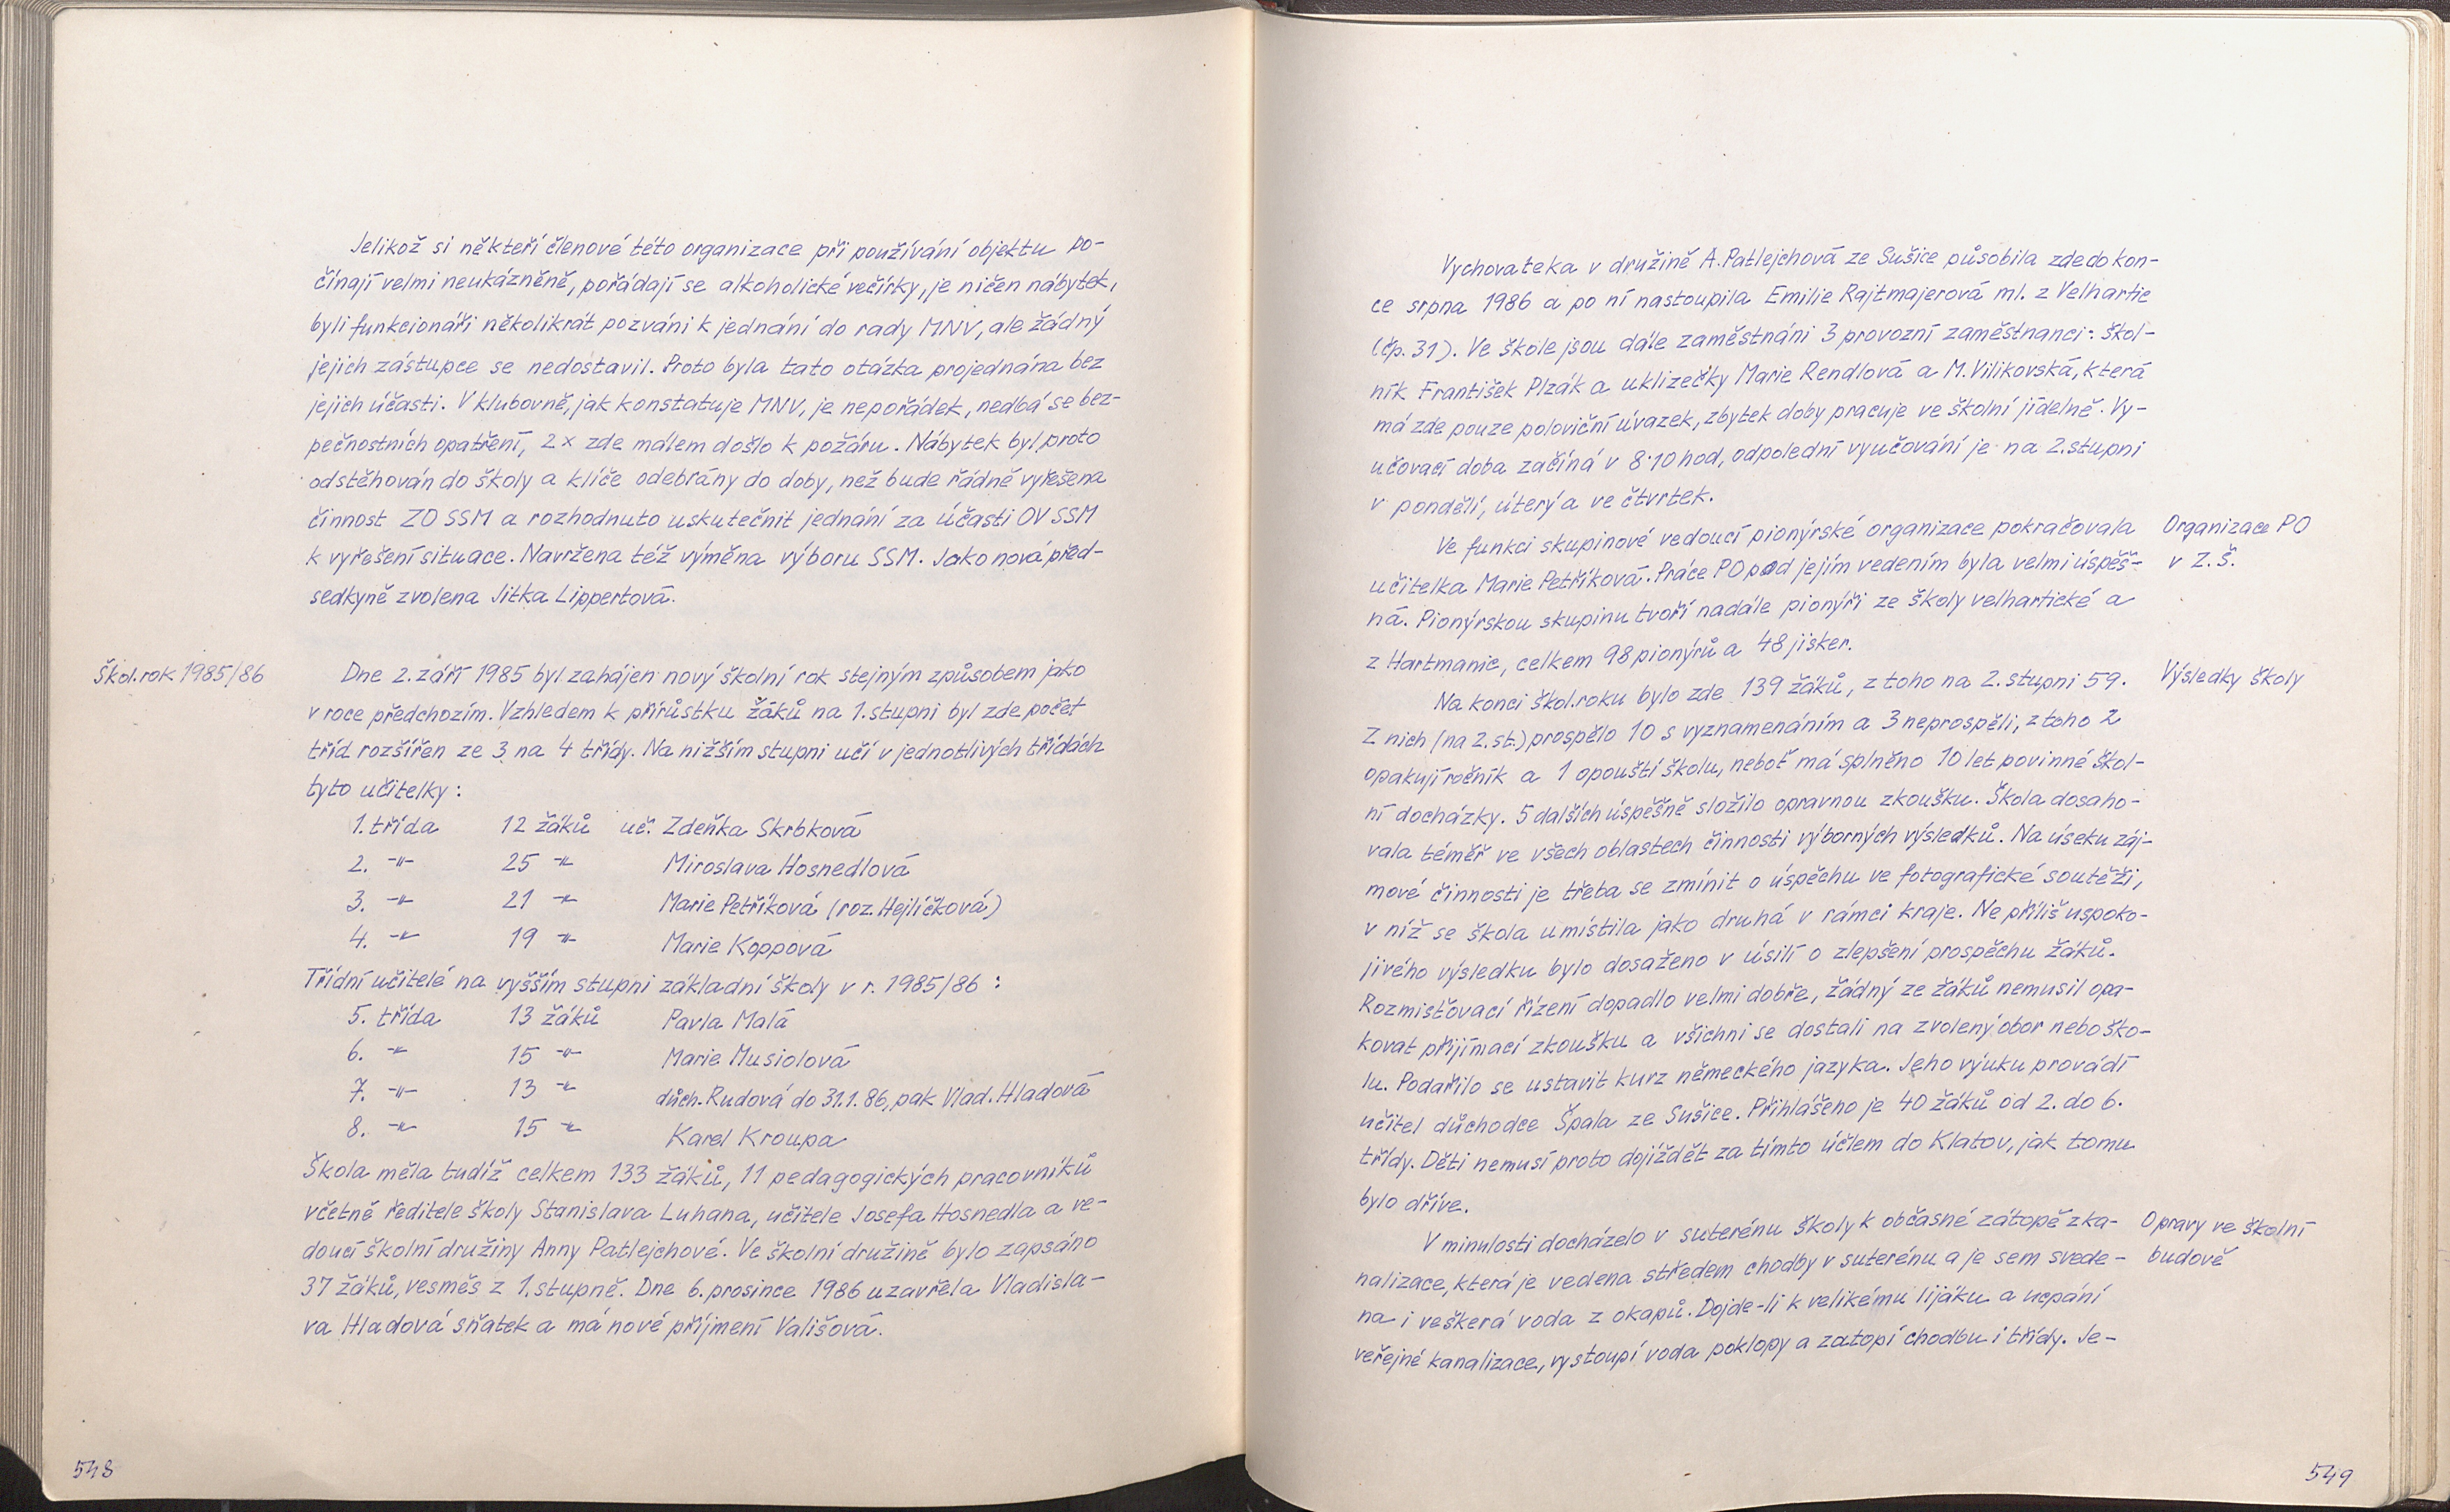 Jelikož si někteří členové této organizace při používání objektu po-
čínají velmi neukázněně, pořádají se alkoholické večírky, je ničen nábytek,
byli funkcionáři několikrát pozváni k jednání do rady MNV, ale žádný
jejich zástupce se nedostavil. Proto byla tato otázka projednána bez
jejich účasti. V klubovně, jak konstatuje MNV, je nepořádek, nedbá se bez-
pečnostních opatření, 2x zde málem došlo k požáru. Nábytek byl proto
odstěhován do školy a klíče odebrány do doby, než bude řádně vyřešena
činnost ZO SSM a rozhodnuto uskutečnit jednání za účasti OV SSM
k vyřešení situace. Navržena též výměna výboru SSM. Jako nová před-
sedkyně zvolena Jitka Lippertová.
Škol. rok 1985/86
Dne 2. září 1985 byl zahájen nový školní rok stejným způsobem jako
v roce předchozím. Vzhledem k přírůstku žáků na 1. stupni byl zde počet
tříd rozšířen ze 3 na 4 třídy. Na nižším stupni učí v jednotlivých třídách
tyto učitelky:
1. třída 12 žáků uč. Zdeňka Skrbková
2. -"- 25 -"- Miroslava Hosnedlová
3. -"- 21 -"- Marie Petříková (roz. Hejlíčková)
4. -"- 19 -"- Marie Koppová
Třídní učitelé na vyšším stupni základní školy v r. 1985/86:
5. třída 13 žáků Pavla Malá
6. -"- 15 -"- Marie Musiolová
7. -"- 13 -"- důch. Rudová do 31.1.86, pak Vlad. Hladová
8. -"- 15 -"- Karel Kroupa
Škola měla tudíž celkem 133 žáků, 11 pedagogických pracovníků
včetně ředitele školy Stanislava Luhana, učitele Josefa Hosnedla a ve-
doucí školní družiny Anny Patlejchové. Ve školní družině bylo zapsáno
37 žáků, vesměs z 1. stupně. Dne 6. prosince 1986 uzavřela Vladisla-
va Hladová sňatek a má nové příjmení Vališová.
548
Vychovateka v družině A. Patlejchová ze Sušice působila zde do kon-
ce srpna 1986 a po ní nastoupila Emilie Rajtmajerová ml. z Velhartic
(čp. 31). Ve škole jsou dále zaměstnáni 3 provozní zaměstnanci: škol-
ník František Plzák a uklizečky Marie Rendlová a M. Vilikovská, která
má zde pouze poloviční úvazek, zbytek doby pracuje ve školní jídelně. Vy-
učovací doba začíná v 8.10 hod, odpolední vyučování je na 2. stupni
v pondělí, úterý a ve čtvrtek.
Ve funkci skupinové vedoucí pionýrské organizace pokračovala
učitelka Marie Petříková. Práce PO pod jejím vedením byla velmi úspěš-
ná. Pionýrskou skupinu tvoří nadále pionýři ze školy velhartické a
z Hartmanic, celkem 98 pionýrů a 48 jisker.
Organizace PO
v Z.Š.
Na konci škol. roku bylo zde 139 žáků, z toho na 2. stupni 59.
Z nich (na 2. st.) prospělo 10 s vyznamenáním a 3 neprospěli, z toho 2
opakují ročník a 1 opouští školu, neboť má splněno 10 let povinné škol-
ní docházky. 5 dalších úspěšně složilo opravnou zkoušku. Škola dosaho-
vala téměř ve všech oblastech činnosti výborných výsledků. Na úseku záj-
mové činnosti je třeba se zmínit o úspěchu ve fotografické soutěži,
v níž se škola umístila jako druhá v rámci kraje. Ne příliš uspoko-
jivého výsledku bylo dosaženo v úsilí o zlepšení prospěchu žáků.
Rozmisťovací řízení dopadlo velmi dobře, žádný ze žáků nemusil opa-
kovat přijímací zkoušku a všichni se dostali na zvolený obor nebo ško-
lu. Podařilo se ustavit kurz německého jazyka. Jeho výuku provádí
učitel důchodce Špala ze Sušice. Přihlášeno je 40 žáků od 2. do 6.
třídy. Děti nemusí proto dojíždět za tímto účlem do Klatov, jak tomu
bylo dříve.
Výsledky školy
V minulosti docházelo v suterénu školy k občasné zátopě z ka-
nalizace, která je vedena středem chodby v suterénu a je sem svede-
na i veškerá voda z okapů. Dojde-li k velikému lijáku a ucpání
veřejné kanalizace, vystoupí voda poklopy a zatopí chodbu i třídy. Je-
Opravy ve školní
budově
549